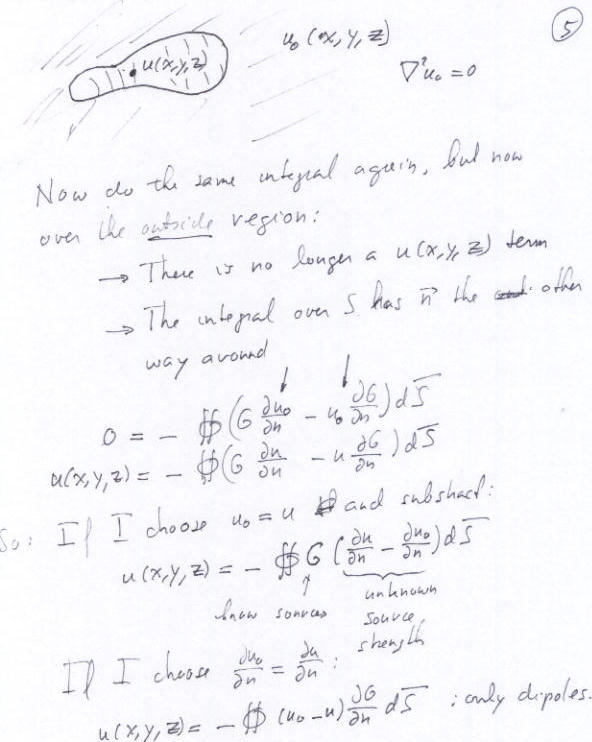 u₀(x, y, z)
5
u(x,y,z)
∇²u₀ = 0
Now do the same integral again, but now
over the outside region:
→ There is no longer a u(x,y,z) term
→ The integral over S has n⃗ the other
way around
0 = - ∯(G ∂u₀/∂n - u₀ ∂G/∂n) dS̅
u(x,y,z) = - ∯(G ∂u/∂n - u ∂G/∂n) dS̅
So: If I choose u₀ = u and substract:
u(x,y,z) = - ∯ G (∂u/∂n - ∂u₀/∂n) dS̅
↑
know sources
unknown
source
strength
If I choose ∂u₀/∂n = ∂u/∂n :
u(x,y,z) = - ∯ (u₀-u) ∂G/∂n dS̅ ; only dipoles.